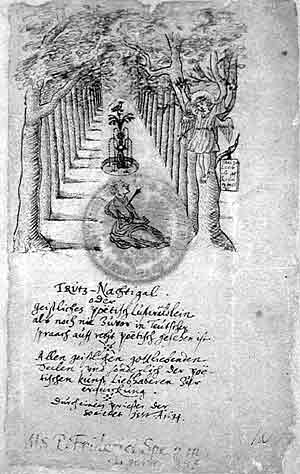 TRUTZ-Nachtigal.
oder
geistliches poëtisch Lustwäldlein
als noch nie zuvor in Teutscher
spraach auff recht poëtisch gesehen ist.
Allen geistlichen gottliebenden
Seelen, und sonderlich der poë-
tischen kunst Liebhaberen zur
erquickung.
Durch einen priester der
Societet Jesu